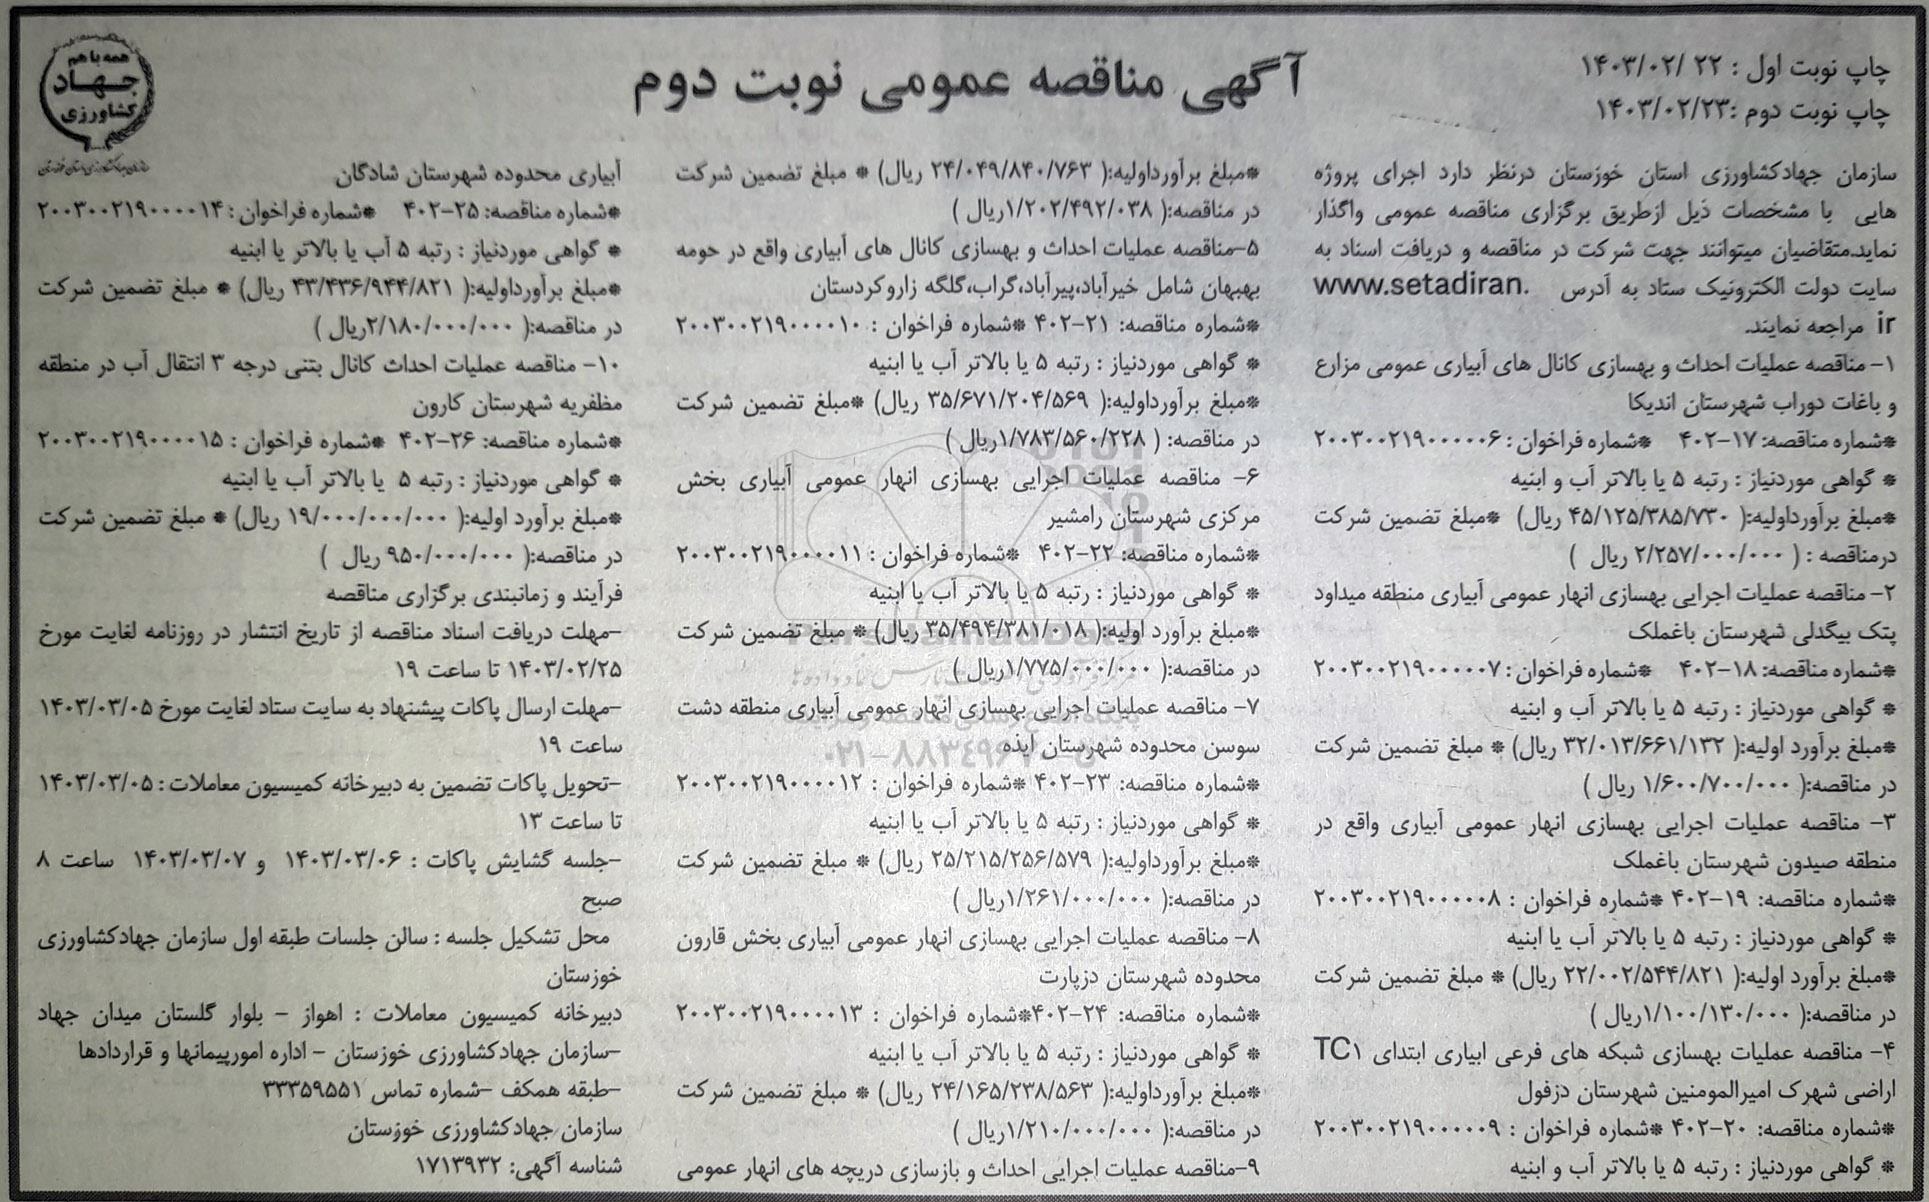 چاپ نوبت اول : ۲۲ /۱۴۰۳/۰۲
چاپ نوبت دوم :۱۴۰۳/۰۲/۲۳
آگهی مناقصه عمومی نوبت دوم
همه با هم
جهاد
کشاورزی
سازمان جهادکشاورزی استان خوزستان درنظر دارد اجرای پروژه
هایی با مشخصات ذیل ازطریق برگزاری مناقصه عمومی واگذار
نماید.متقاضیان میتوانند جهت شرکت در مناقصه و دریافت اسناد به
سایت دولت الکترونیک ستاد به آدرس www.setadiran.
ir مراجعه نمایند.
۱- مناقصه عملیات احداث و بهسازی کانال های آبیاری عمومی مزارع
و باغات دوراب شهرستان اندیکا
*شماره مناقصه: ۱۷-۴۰۲ *شماره فراخوان : ۲۰۰۳۰۰۲۱۹۰۰۰۰۰۶
* گواهی موردنیاز : رتبه ۵ یا بالاتر آب و ابنیه
*مبلغ برآورداولیه:( ۴۵/۱۲۵/۳۸۵/۷۳۰ ریال) *مبلغ تضمین شرکت
درمناقصه : ( ۲/۲۵۷/۰۰۰/۰۰۰ ریال )
۲- مناقصه عملیات اجرایی بهسازی انهار عمومی آبیاری منطقه میداود
پتک بیگدلی شهرستان باغملک
*شماره مناقصه: ۱۸-۴۰۲ *شماره فراخوان : ۲۰۰۳۰۰۲۱۹۰۰۰۰۰۷
* گواهی موردنیاز : رتبه ۵ یا بالاتر آب و ابنیه
*مبلغ برآورد اولیه:( ۳۲/۰۱۳/۶۶۱/۱۳۲ ریال) * مبلغ تضمین شرکت
در مناقصه:( ۱/۶۰۰/۷۰۰/۰۰۰ ریال )
۳- مناقصه عملیات اجرایی بهسازی انهار عمومی آبیاری واقع در
منطقه صیدون شهرستان باغملک
*شماره مناقصه: ۱۹-۴۰۲ *شماره فراخوان : ۲۰۰۳۰۰۲۱۹۰۰۰۰۰۸
* گواهی موردنیاز : رتبه ۵ یا بالاتر آب یا ابنیه
*مبلغ برآورد اولیه:( ۲۲/۰۰۲/۵۴۴/۸۲۱ ریال) * مبلغ تضمین شرکت
در مناقصه:( ۱/۱۰۰/۱۳۰/۰۰۰ریال )
۴- مناقصه عملیات بهسازی شبکه های فرعی ابیاری ابتدای TC۱
اراضی شهرک امیرالمومنین شهرستان دزفول
*شماره مناقصه: ۲۰-۴۰۲ *شماره فراخوان : ۲۰۰۳۰۰۲۱۹۰۰۰۰۰۹
* گواهی موردنیاز : رتبه ۵ یا بالاتر آب و ابنیه
*مبلغ برآورداولیه:( ۲۴/۰۴۹/۸۴۰/۷۶۳ ریال) * مبلغ تضمین شرکت
در مناقصه:( ۱/۲۰۲/۴۹۲/۰۳۸ریال )
۵-مناقصه عملیات احداث و بهسازی کانال های آبیاری واقع در حومه
بهبهان شامل خیرآباد،پیرآباد،گراب،گلگه زاروکردستان
*شماره مناقصه: ۲۱-۴۰۲ *شماره فراخوان : ۲۰۰۳۰۰۲۱۹۰۰۰۰۱۰
* گواهی موردنیاز : رتبه ۵ یا بالاتر آب یا ابنیه
*مبلغ برآورداولیه:( ۳۵/۶۷۱/۲۰۴/۵۶۹ ریال) *مبلغ تضمین شرکت
در مناقصه: ( ۱/۷۸۳/۵۶۰/۲۲۸ریال )
۶- مناقصه عملیات اجرایی بهسازی انهار عمومی آبیاری بخش
مرکزی شهرستان رامشیر
*شماره مناقصه: ۲۲-۴۰۲ *شماره فراخوان : ۲۰۰۳۰۰۲۱۹۰۰۰۰۱۱
* گواهی موردنیاز : رتبه ۵ یا بالاتر آب یا ابنیه
*مبلغ برآورد اولیه:( ۳۵/۴۹۴/۳۸۱/۰۱۸ ریال) * مبلغ تضمین شرکت
در مناقصه:( ۱/۷۷۵/۰۰۰/۰۰۰ریال )
۷- مناقصه عملیات اجرایی بهسازی انهار عمومی آبیاری منطقه دشت
سوسن محدوده شهرستان ایذه
*شماره مناقصه: ۲۳-۴۰۲ *شماره فراخوان : ۲۰۰۳۰۰۲۱۹۰۰۰۰۱۲
* گواهی موردنیاز : رتبه ۵ یا بالاتر آب یا ابنیه
*مبلغ برآورداولیه:( ۲۵/۲۱۵/۲۵۶/۵۷۹ ریال) * مبلغ تضمین شرکت
در مناقصه:( ۱/۲۶۱/۰۰۰/۰۰۰ریال )
۸- مناقصه عملیات اجرایی بهسازی انهار عمومی آبیاری بخش قارون
محدوده شهرستان دزپارت
*شماره مناقصه: ۲۴-۴۰۲*شماره فراخوان : ۲۰۰۳۰۰۲۱۹۰۰۰۰۱۳
* گواهی موردنیاز : رتبه ۵ یا بالاتر آب یا ابنیه
*مبلغ برآورداولیه:( ۲۴/۱۶۵/۲۳۸/۵۶۳ ریال) * مبلغ تضمین شرکت
در مناقصه:( ۱/۲۱۰/۰۰۰/۰۰۰ریال )
۹-مناقصه عملیات اجرایی احداث و بازسازی دریچه های انهار عمومی
آبیاری محدوده شهرستان شادگان
*شماره مناقصه: ۲۵-۴۰۲ *شماره فراخوان : ۲۰۰۳۰۰۲۱۹۰۰۰۰۱۴
* گواهی موردنیاز : رتبه ۵ آب یا بالاتر یا ابنیه
*مبلغ برآورداولیه:( ۴۳/۴۳۶/۹۴۴/۸۲۱ ریال) * مبلغ تضمین شرکت
در مناقصه:( ۲/۱۸۰/۰۰۰/۰۰۰ریال )
۱۰- مناقصه عملیات احداث کانال بتنی درجه ۳ انتقال آب در منطقه
مظفریه شهرستان کارون
*شماره مناقصه: ۲۶-۴۰۲ *شماره فراخوان : ۲۰۰۳۰۰۲۱۹۰۰۰۰۱۵
* گواهی موردنیاز : رتبه ۵ یا بالاتر آب یا ابنیه
*مبلغ برآورد اولیه:( ۱۹/۰۰۰/۰۰۰/۰۰۰ ریال) * مبلغ تضمین شرکت
در مناقصه:( ۹۵۰/۰۰۰/۰۰۰ ریال )
فرآیند و زمانبندی برگزاری مناقصه
-مهلت دریافت اسناد مناقصه از تاریخ انتشار در روزنامه لغایت مورخ
۱۴۰۳/۰۲/۲۵ تا ساعت ۱۹
-مهلت ارسال پاکات پیشنهاد به سایت ستاد لغایت مورخ ۱۴۰۳/۰۳/۰۵
ساعت ۱۹
-تحویل پاکات تضمین به دبیرخانه کمیسیون معاملات : ۱۴۰۳/۰۳/۰۵
تا ساعت ۱۳
-جلسه گشایش پاکات : ۱۴۰۳/۰۳/۰۶ و ۱۴۰۳/۰۳/۰۷ ساعت ۸
صبح
محل تشکیل جلسه : سالن جلسات طبقه اول سازمان جهادکشاورزی
خوزستان
دبیرخانه کمیسیون معاملات : اهواز - بلوار گلستان میدان جهاد
-سازمان جهادکشاورزی خوزستان - اداره امورپیمانها و قراردادها
-طبقه همکف -شماره تماس ۳۳۳۵۹۵۵۱
سازمان جهادکشاورزی خوزستان
شناسه آگهی: ۱۷۱۳۹۳۲